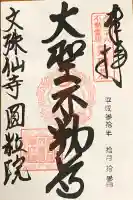 奉拝
平成参拾年 拾月 拾 日
大聖不動尊
文殊仙寺 圓教院